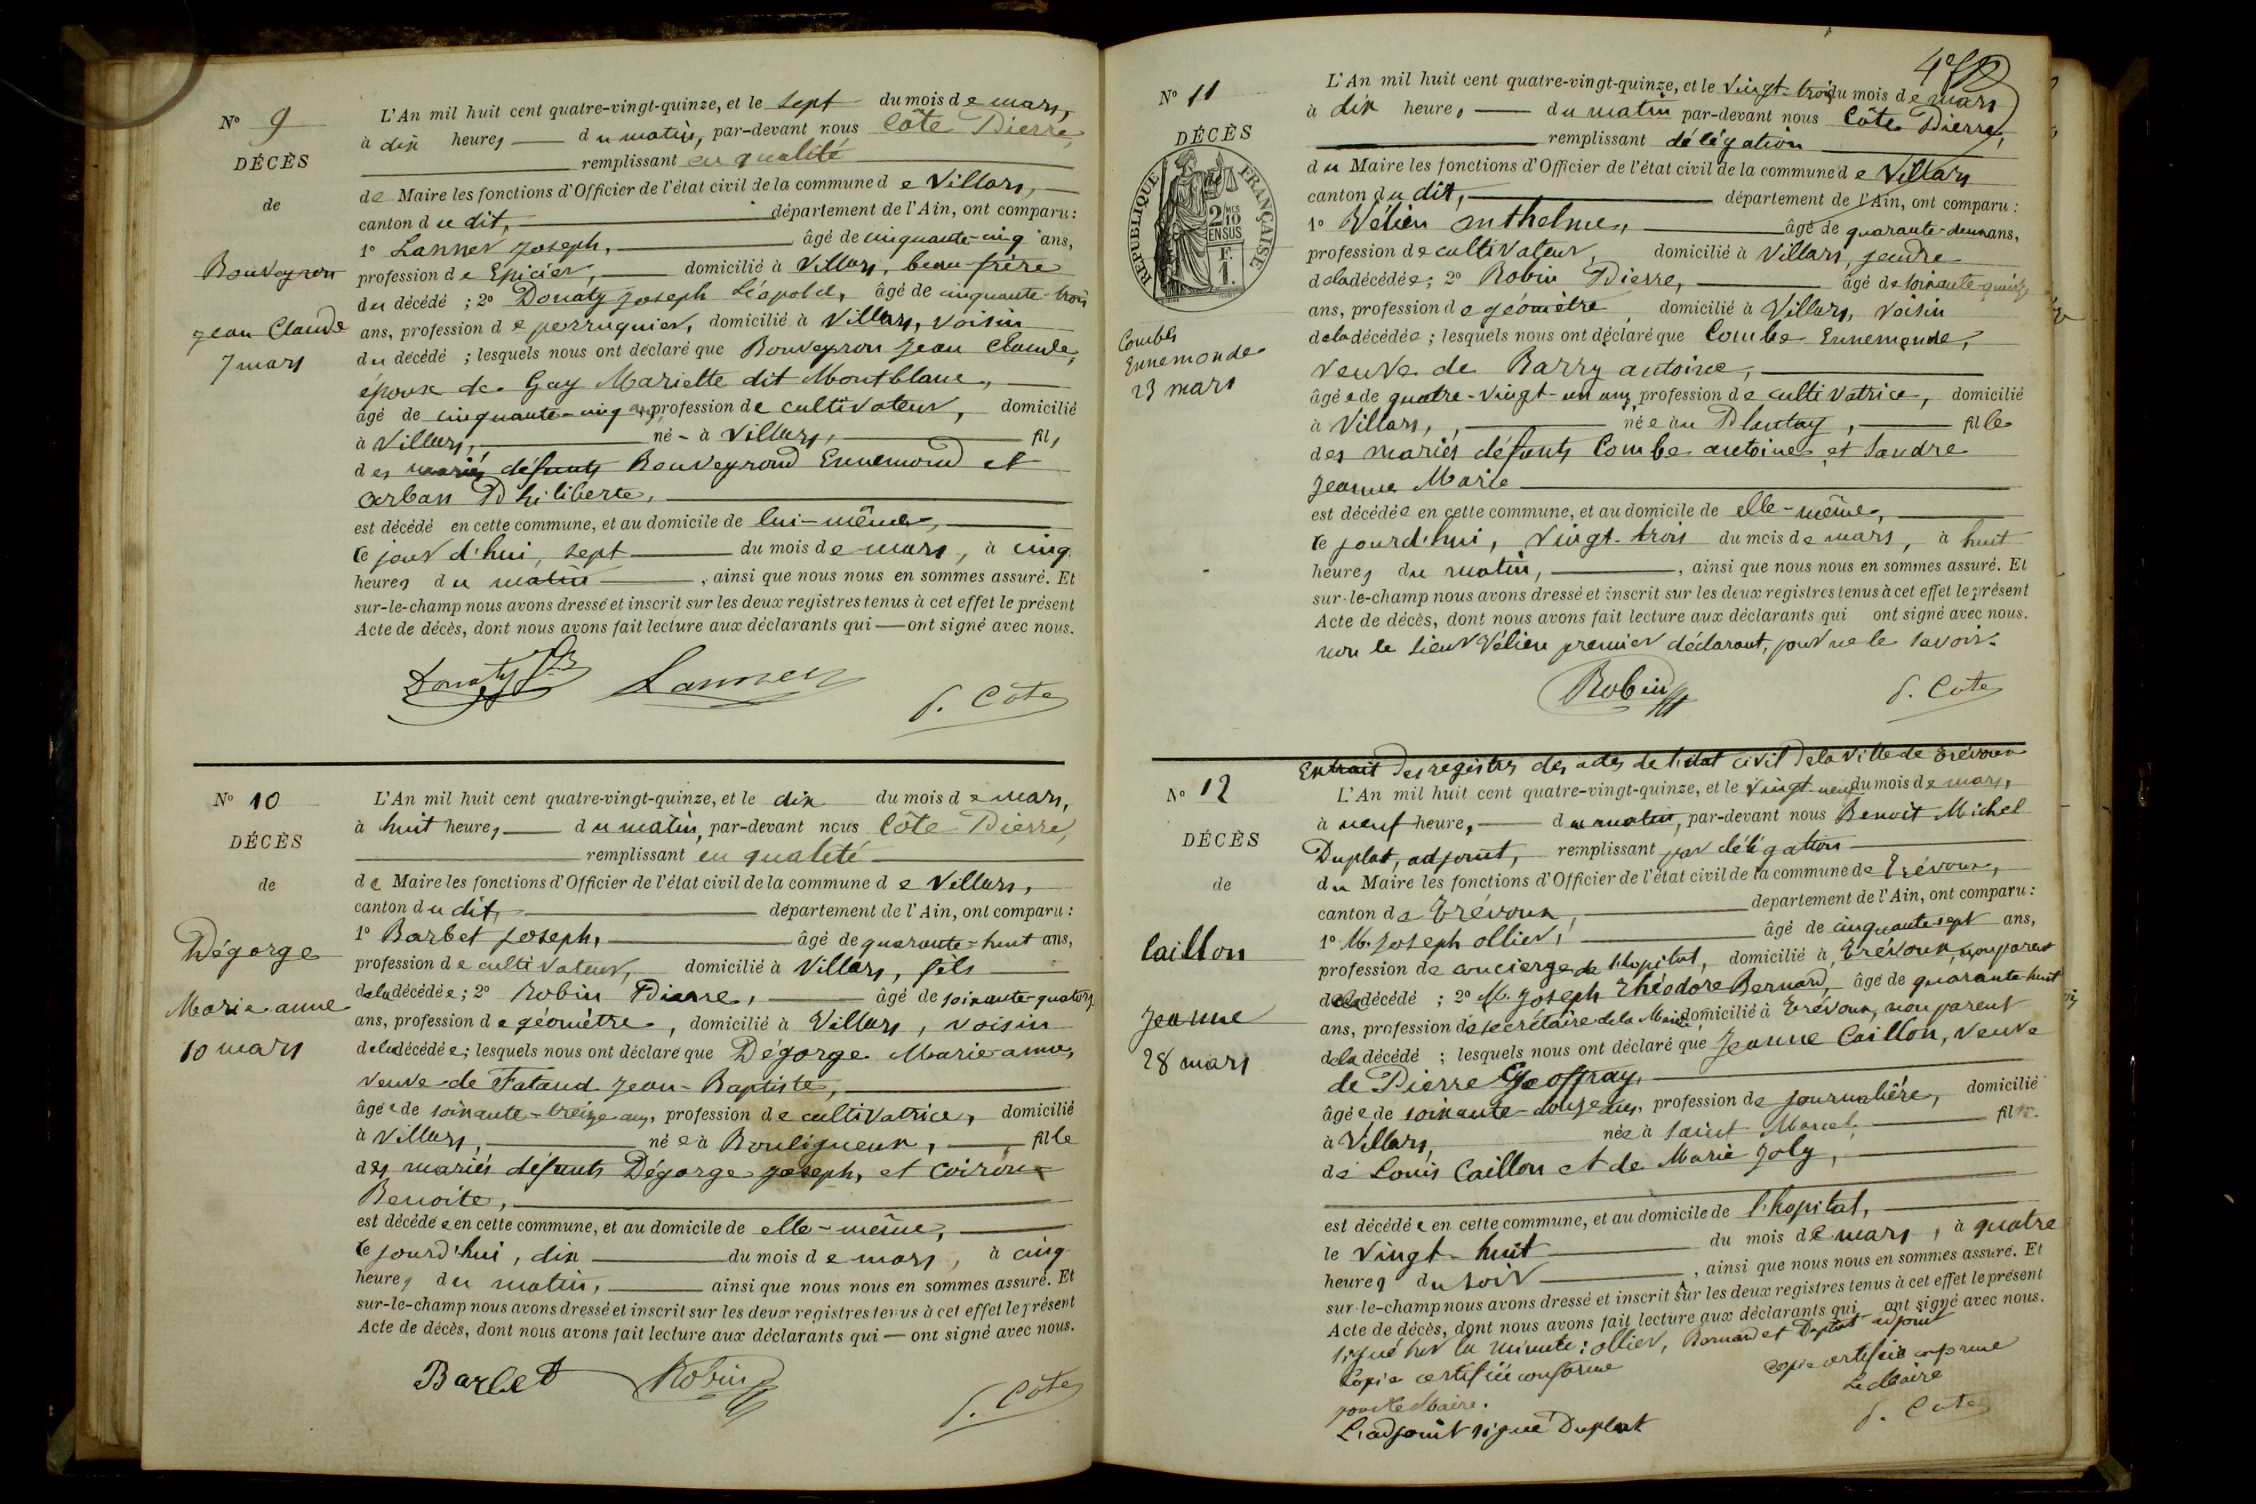 N° 9
DÉCÈS
de
Bouveyron
Jean Claude
7 mars
L'An mil huit cent quatre-vingt-quinze, et le sept du mois de mars,
à dix heures du matin, par-devant nous Côte Pierre,
remplissant en qualité
de Maire les fonctions d'Officier de l'état civil de la commune de Villars,
canton du dit, département de l'Ain, ont comparu :
1° Lanner Joseph, âgé de cinquante-cinq ans,
profession de Epicier, domicilié à Villars, beau-frère
du décédé ; 2° Donaty Joseph Léopold, âgé de cinquante-trois
ans, profession de perruquier, domicilié à Villars, voisin
du décédé ; lesquels nous ont déclaré que Bouveyron Jean Claude,
époux de Gay Mariette dit Montblanc,
âgé de cinquante-cinq ans, profession de cultivateur, domicilié
à Villars, né à Villars, fils
des mariés défunts Bouveyrond Ennemond et
Arban Philiberte,
est décédé en cette commune, et au domicile de lui-même,
ce jour d'hui, sept du mois de mars, à cinq
heures du matin, ainsi que nous nous en sommes assuré. Et
sur-le-champ nous avons dressé et inscrit sur les deux registres tenus à cet effet le présent
Acte de décès, dont nous avons fait lecture aux déclarants qui ont signé avec nous.
Donaty Lanner P. Côte
N° 10
DÉCÈS
de
Dégorge
Marie anne
10 mars
L'An mil huit cent quatre-vingt-quinze, et le dix du mois de mars,
à huit heures du matin, par-devant nous Côte Pierre,
remplissant en qualité
de Maire les fonctions d'Officier de l'état civil de la commune de Villars,
canton du dit, département de l'Ain, ont comparu :
1° Barbet Joseph, âgé de quarante-huit ans,
profession de cultivateur, domicilié à Villars, fils
de la décédée ; 2° Robin Pierre, âgé de soixante-quatorze
ans, profession de géomètre, domicilié à Villars, voisin
de la décédée ; lesquels nous ont déclaré que Dégorge Marie anne,
veuve de Fataud Jean-Baptiste,
âgée de soixante-treize ans, profession de cultivatrice, domicilié
à Villars, née à Bouligneux, fille
des mariés défunts Dégorge Joseph, et Coiron
Benoite,
est décédée en cette commune, et au domicile de elle-même,
ce jourd'hui, dix du mois de mars, à cinq
heures du matin, ainsi que nous nous en sommes assuré. Et
sur-le-champ nous avons dressé et inscrit sur les deux registres tenus à cet effet le présent
Acte de décès, dont nous avons fait lecture aux déclarants qui ont signé avec nous.
Barbet Robin P. Côte
N° 11
DÉCÈS
de
RÉPUBLIQUE FRANÇAISE
2/10 MES
EN SUS
F.
1.
Combe
Ennemonde
23 mars
L'An mil huit cent quatre-vingt-quinze, et le vingt-trois du mois de mars
à dix heures du matin par-devant nous Côte Pierre,
remplissant délégation
du Maire les fonctions d'Officier de l'état civil de la commune de Villars
canton du dit, département de l'Ain, ont comparu :
1° Vélien Anthelme, âgé de quarante-deux ans,
profession de cultivateur, domicilié à Villars, gendre
de la décédée ; 2° Robin Pierre, âgé de soixante-quinze
ans, profession de géomètre, domicilié à Villars, voisin
de la décédée ; lesquels nous ont déclaré que Combe Ennemonde,
veuve de Barry antoine,
âgée de quatre-vingt-un ans, profession de cultivatrice, domicilié
à Villars, née au Plantay, fille
des mariés défunts Combe antoine et Sandre
Jeanne Marie
est décédée en cette commune, et au domicile de elle-même,
ce jourd'hui, vingt-trois du mois de mars, à huit
heures du matin, ainsi que nous nous en sommes assuré. Et
sur-le-champ nous avons dressé et inscrit sur les deux registres tenus à cet effet le présent
Acte de décès, dont nous avons fait lecture aux déclarants qui ont signé avec nous.
non le sieur Vélien premier déclarant, pour ne le savoir.
Robin P. Côte
N° 12
DÉCÈS
de
Caillon
Jeanne
28 mars
Extrait des registres des actes de l'état civil de la Ville de Trévoux
L'An mil huit cent quatre-vingt-quinze, et le vingt-neuf du mois de mars,
à neuf heures du matin, par-devant nous Benoit Michel
Duplat, adjoint, remplissant par délégation
du Maire les fonctions d'Officier de l'état civil de la commune de Trévoux,
canton de Trévoux, département de l'Ain, ont comparu :
1° M. Joseph Ollier, âgé de cinquante sept ans,
profession de concierge de l'hopital, domicilié à Trévoux, non parent
de la décédé ; 2° M. Joseph Théodore Bernard, âgé de quarante huit
ans, profession de secrétaire de la Mairie, domicilié à Trévoux, non parent
de la décédé ; lesquels nous ont déclaré que Jeanne Caillon, veuve
de Pierre Geoffray,
âgée de soixante-douze ans, profession de journalière, domicilié
à Villars, née à Saint Marcel, fille
de Louis Caillon et de Marie Joly,
est décédée en cette commune, et au domicile de l'hopital,
le vingt-huit du mois de mars, à quatre
heures du soir, ainsi que nous nous en sommes assuré. Et
sur-le-champ nous avons dressé et inscrit sur les deux registres tenus à cet effet le présent
Acte de décès, dont nous avons fait lecture aux déclarants qui ont signé avec nous.
Signé sur la minute : Ollier, Bernard et Duplat adjoint
Copie certifiée conforme
pour le Maire.
L'adjoint signé Duplat
Copie certifiée conforme
Le Maire
P. Côte